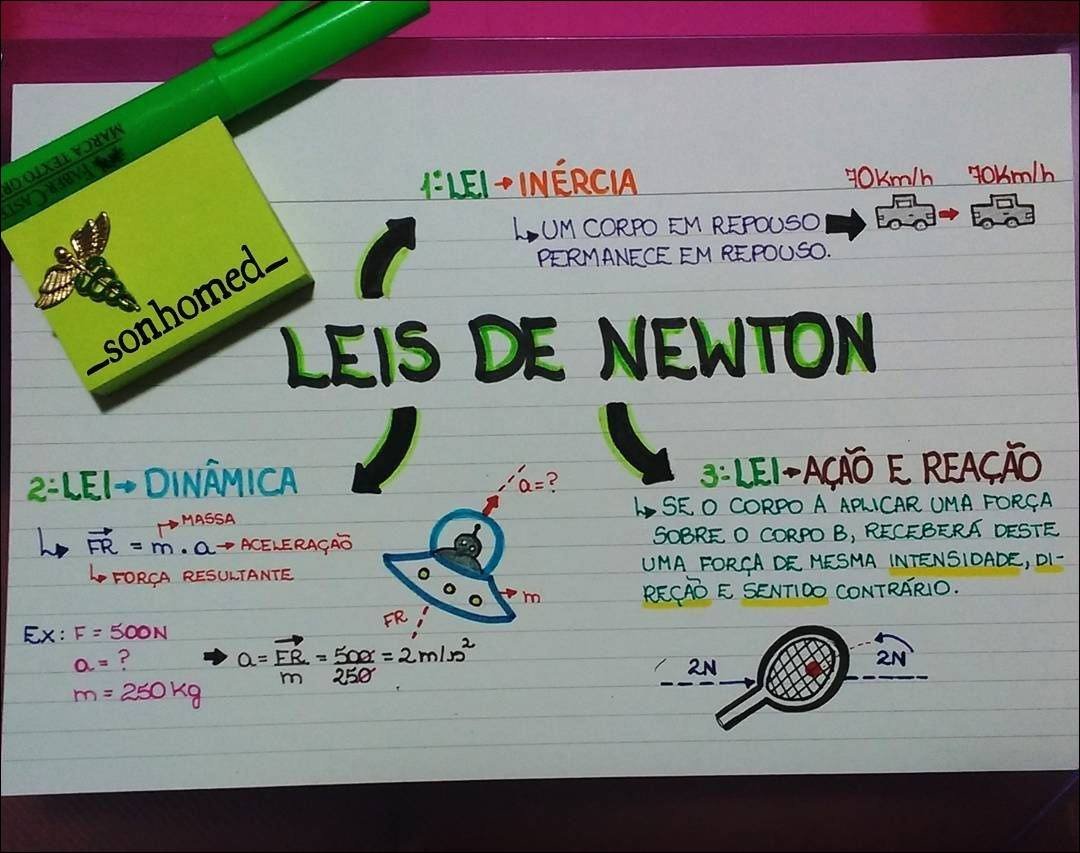 MARCA TEXTO GR
FABER CASTE
_sonhomed_
1ª LEI → INÉRCIA
↳ UM CORPO EM REPOUSO
PERMANECE EM REPOUSO.
70Km/h 70Km/h
LEIS DE NEWTON
2ª LEI → DINÂMICA
MASSA
↳ FR = m . a → ACELERAÇÃO
↳ FORÇA RESULTANTE
Ex: F = 500N
a = ?
m = 250 Kg
a = FR = 500 = 2 m/s²
m 250
a = ?
m
FR
3ª LEI → AÇÃO E REAÇÃO
↳ SE O CORPO A APLICAR UMA FORÇA
SOBRE O CORPO B, RECEBERÁ DESTE
UMA FORÇA DE MESMA INTENSIDADE, DI-
REÇÃO E SENTIDO CONTRÁRIO.
2N 2N